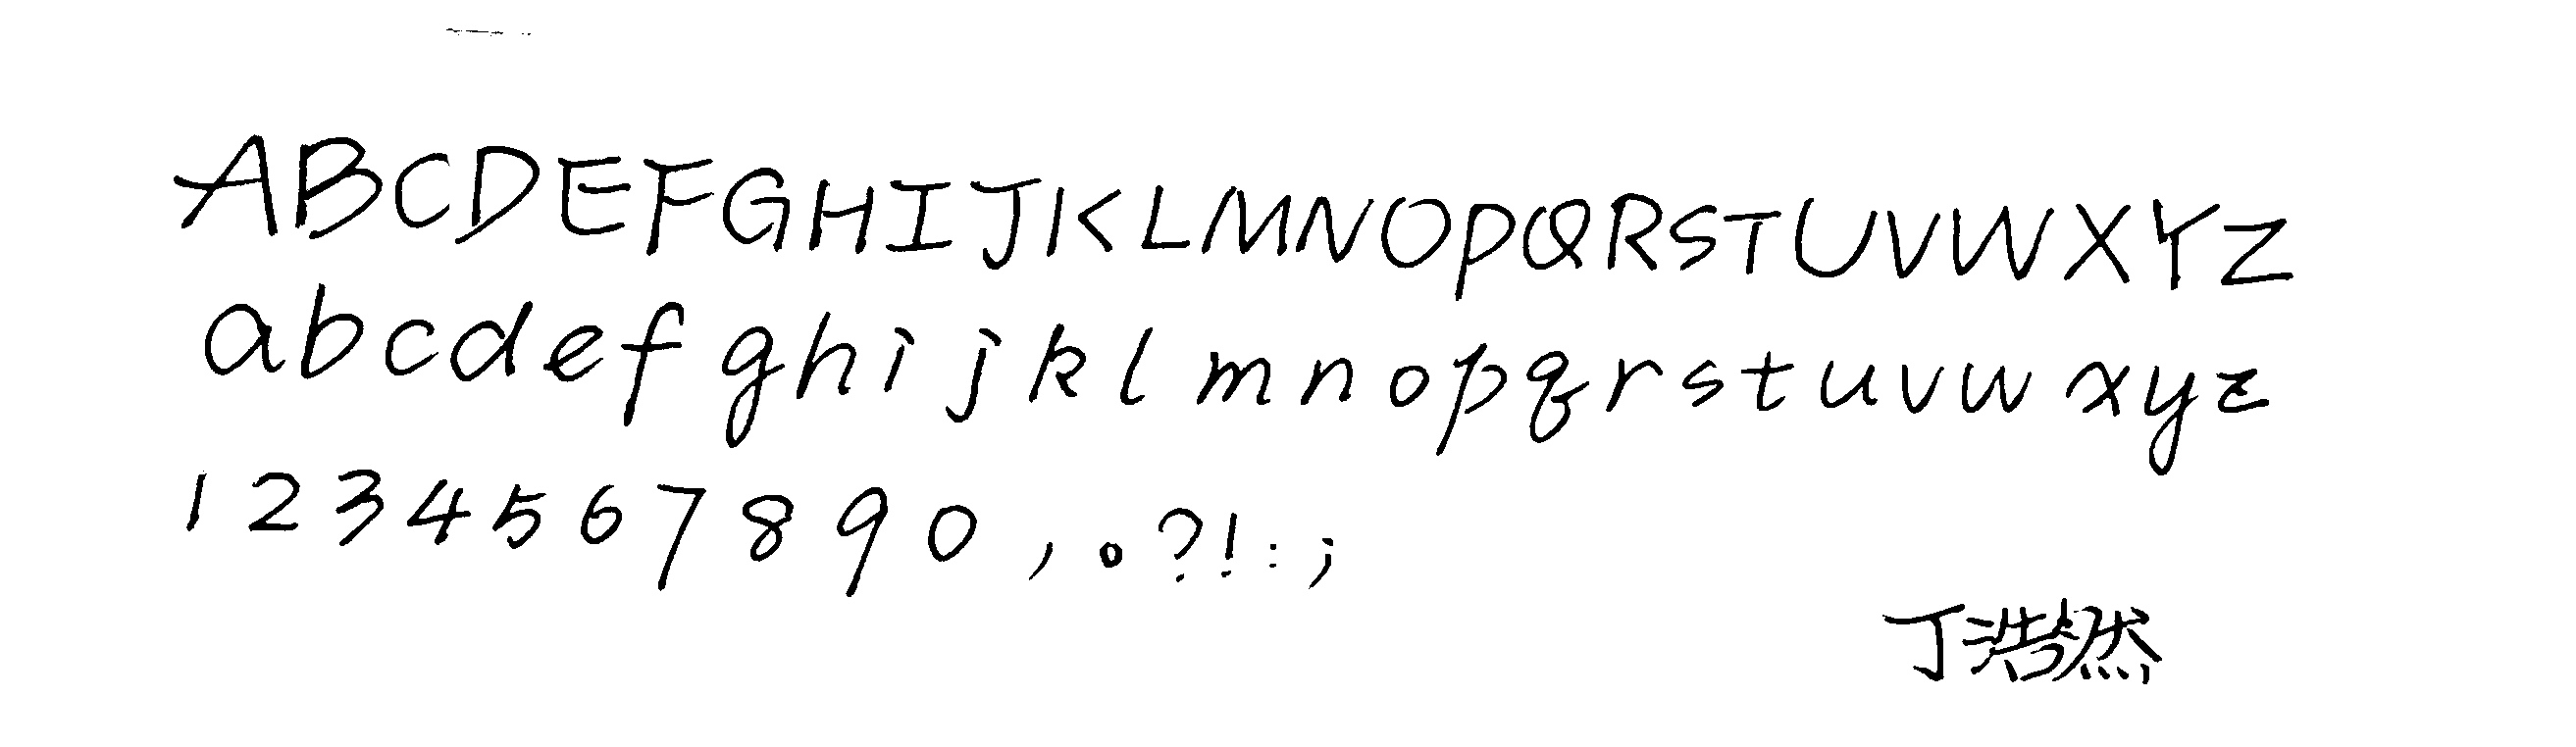 ABCDEFGHIJKLMNOPQRSTUVWXYZ
abcdefghijklmnopqrstuvwxyz
1234567890,。?!:;
丁浩然